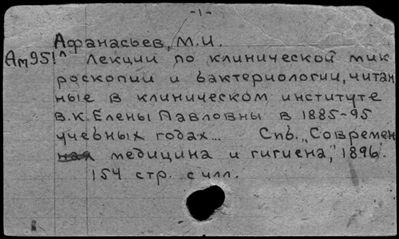 -1-
Афанасьев, М.И.
Ам951^ Лекции по клинической мик
роскопии и бактериологии, читан
ные в клиническом институте
в.к. Елены Павловны в 1885-95
учебных годах... Спб. „Современ
ная медицина и гигиена", 1896.
154 стр. с илл.